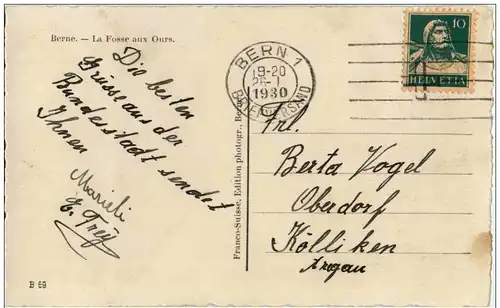 Berne. — La Fosse aux Ours.
Die besten
Grüsse aus der
Bundesstadt sendet
Ihnen
Marieli
E. Frey
B 69
Franco-Suisse, Edition photogr.,
BERN 1
19-20
1930
10
HELVETIA
Frl.
Berta Vogel
Oberdorf
Kölliken
Argau